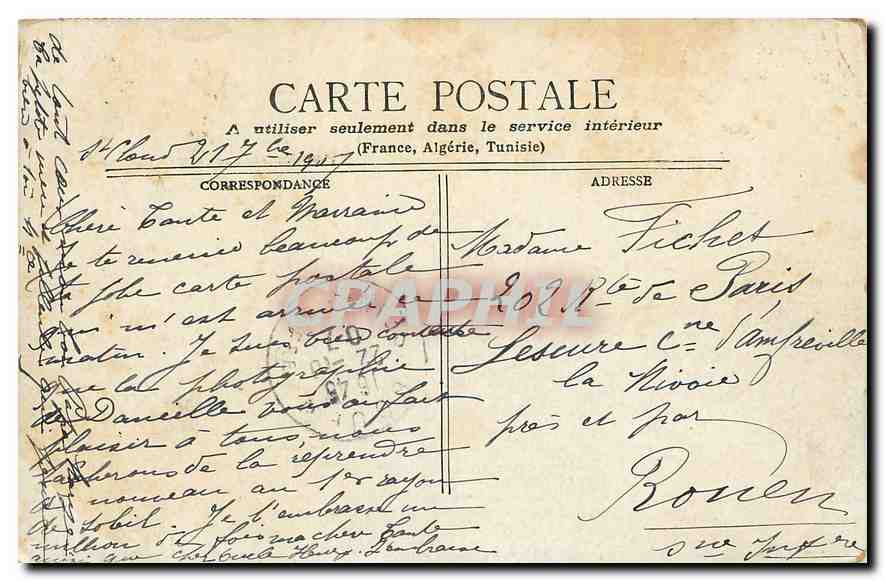 CARTE POSTALE
A utiliser seulement dans le service intérieur
(France, Algérie, Tunisie)
St Cloud 21 7bre 1907
CORRESPONDANCE
Chère Tante et Marraine
Je te remercie beaucoup de
ta jolie carte postale
qui m'est arrivée ce
matin. Je suis bien contente
que la photographie
de Danielle vous ai fait
plaisir à tous, nous
tacherons de la reprendre
de nouveau au 1er rayon
de soleil. Je t'embrasse un
million de fois ma chère Tante
ainsi que cher Oncle
ADRESSE
Madame Fichet
202 Rte de Paris
Lescure Cne d'Amfreville
la Mivoie
près et par
Rouen
Sne Infre
CPAPHIL
de tout